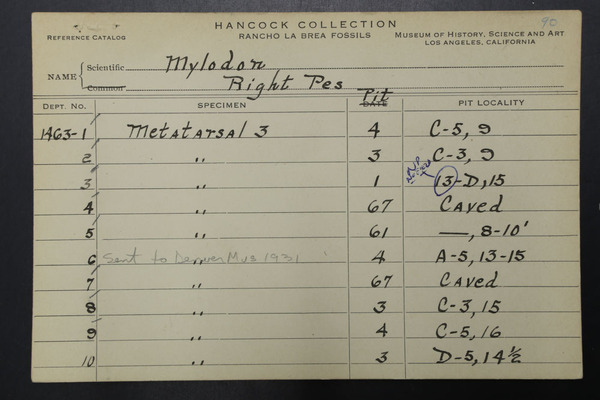 90
HANCOCK COLLECTION
REFERENCE CATALOG RANCHO LA BREA FOSSILS MUSEUM OF HISTORY, SCIENCE AND ART
LOS ANGELES, CALIFORNIA
NAME Scientific Mylodon
Common Right Pes
DEPT. NO. SPECIMEN Pit DATE PIT LOCALITY
1463-1 Metatarsal 3 4 C-5, 9
2 " 3 C-3, 9
3 " 1 13-D, 15
4 " 67 Caved
5 " 61 —, 8-10'
6 Sent to Denver Mus 1931 " 4 A-5, 13-15
7 " 67 Caved
8 " 3 C-3, 15
9 " 4 C-5, 16
10 " 3 D-5, 14½